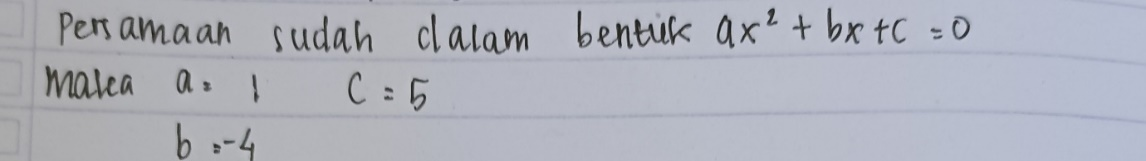 Persamaan sudah dalam bentuk ax² + bx + c = 0
Maka a = 1 C = 5
b = -4